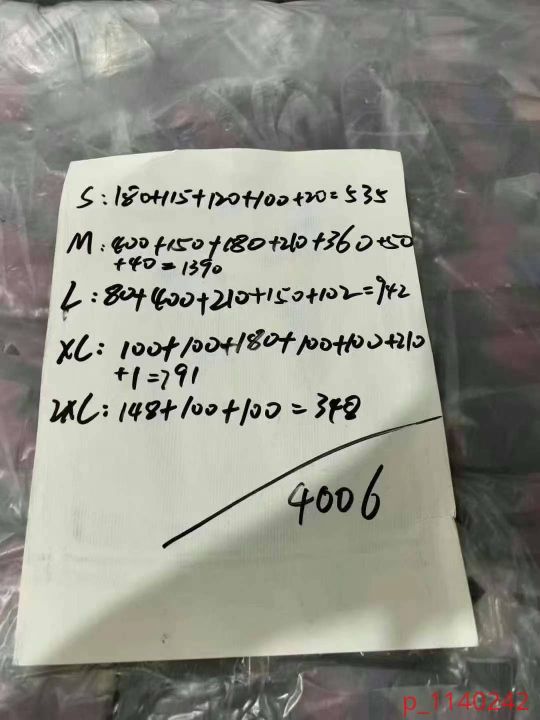 S: 180+115+120+100+20=535
M: 400+150+180+210+360+50
+40=1390
L: 80+400+210+150+102=942
XL: 100+100+180+100+100+210
+1=791
2XL: 148+100+100=348
4006
p_1140242